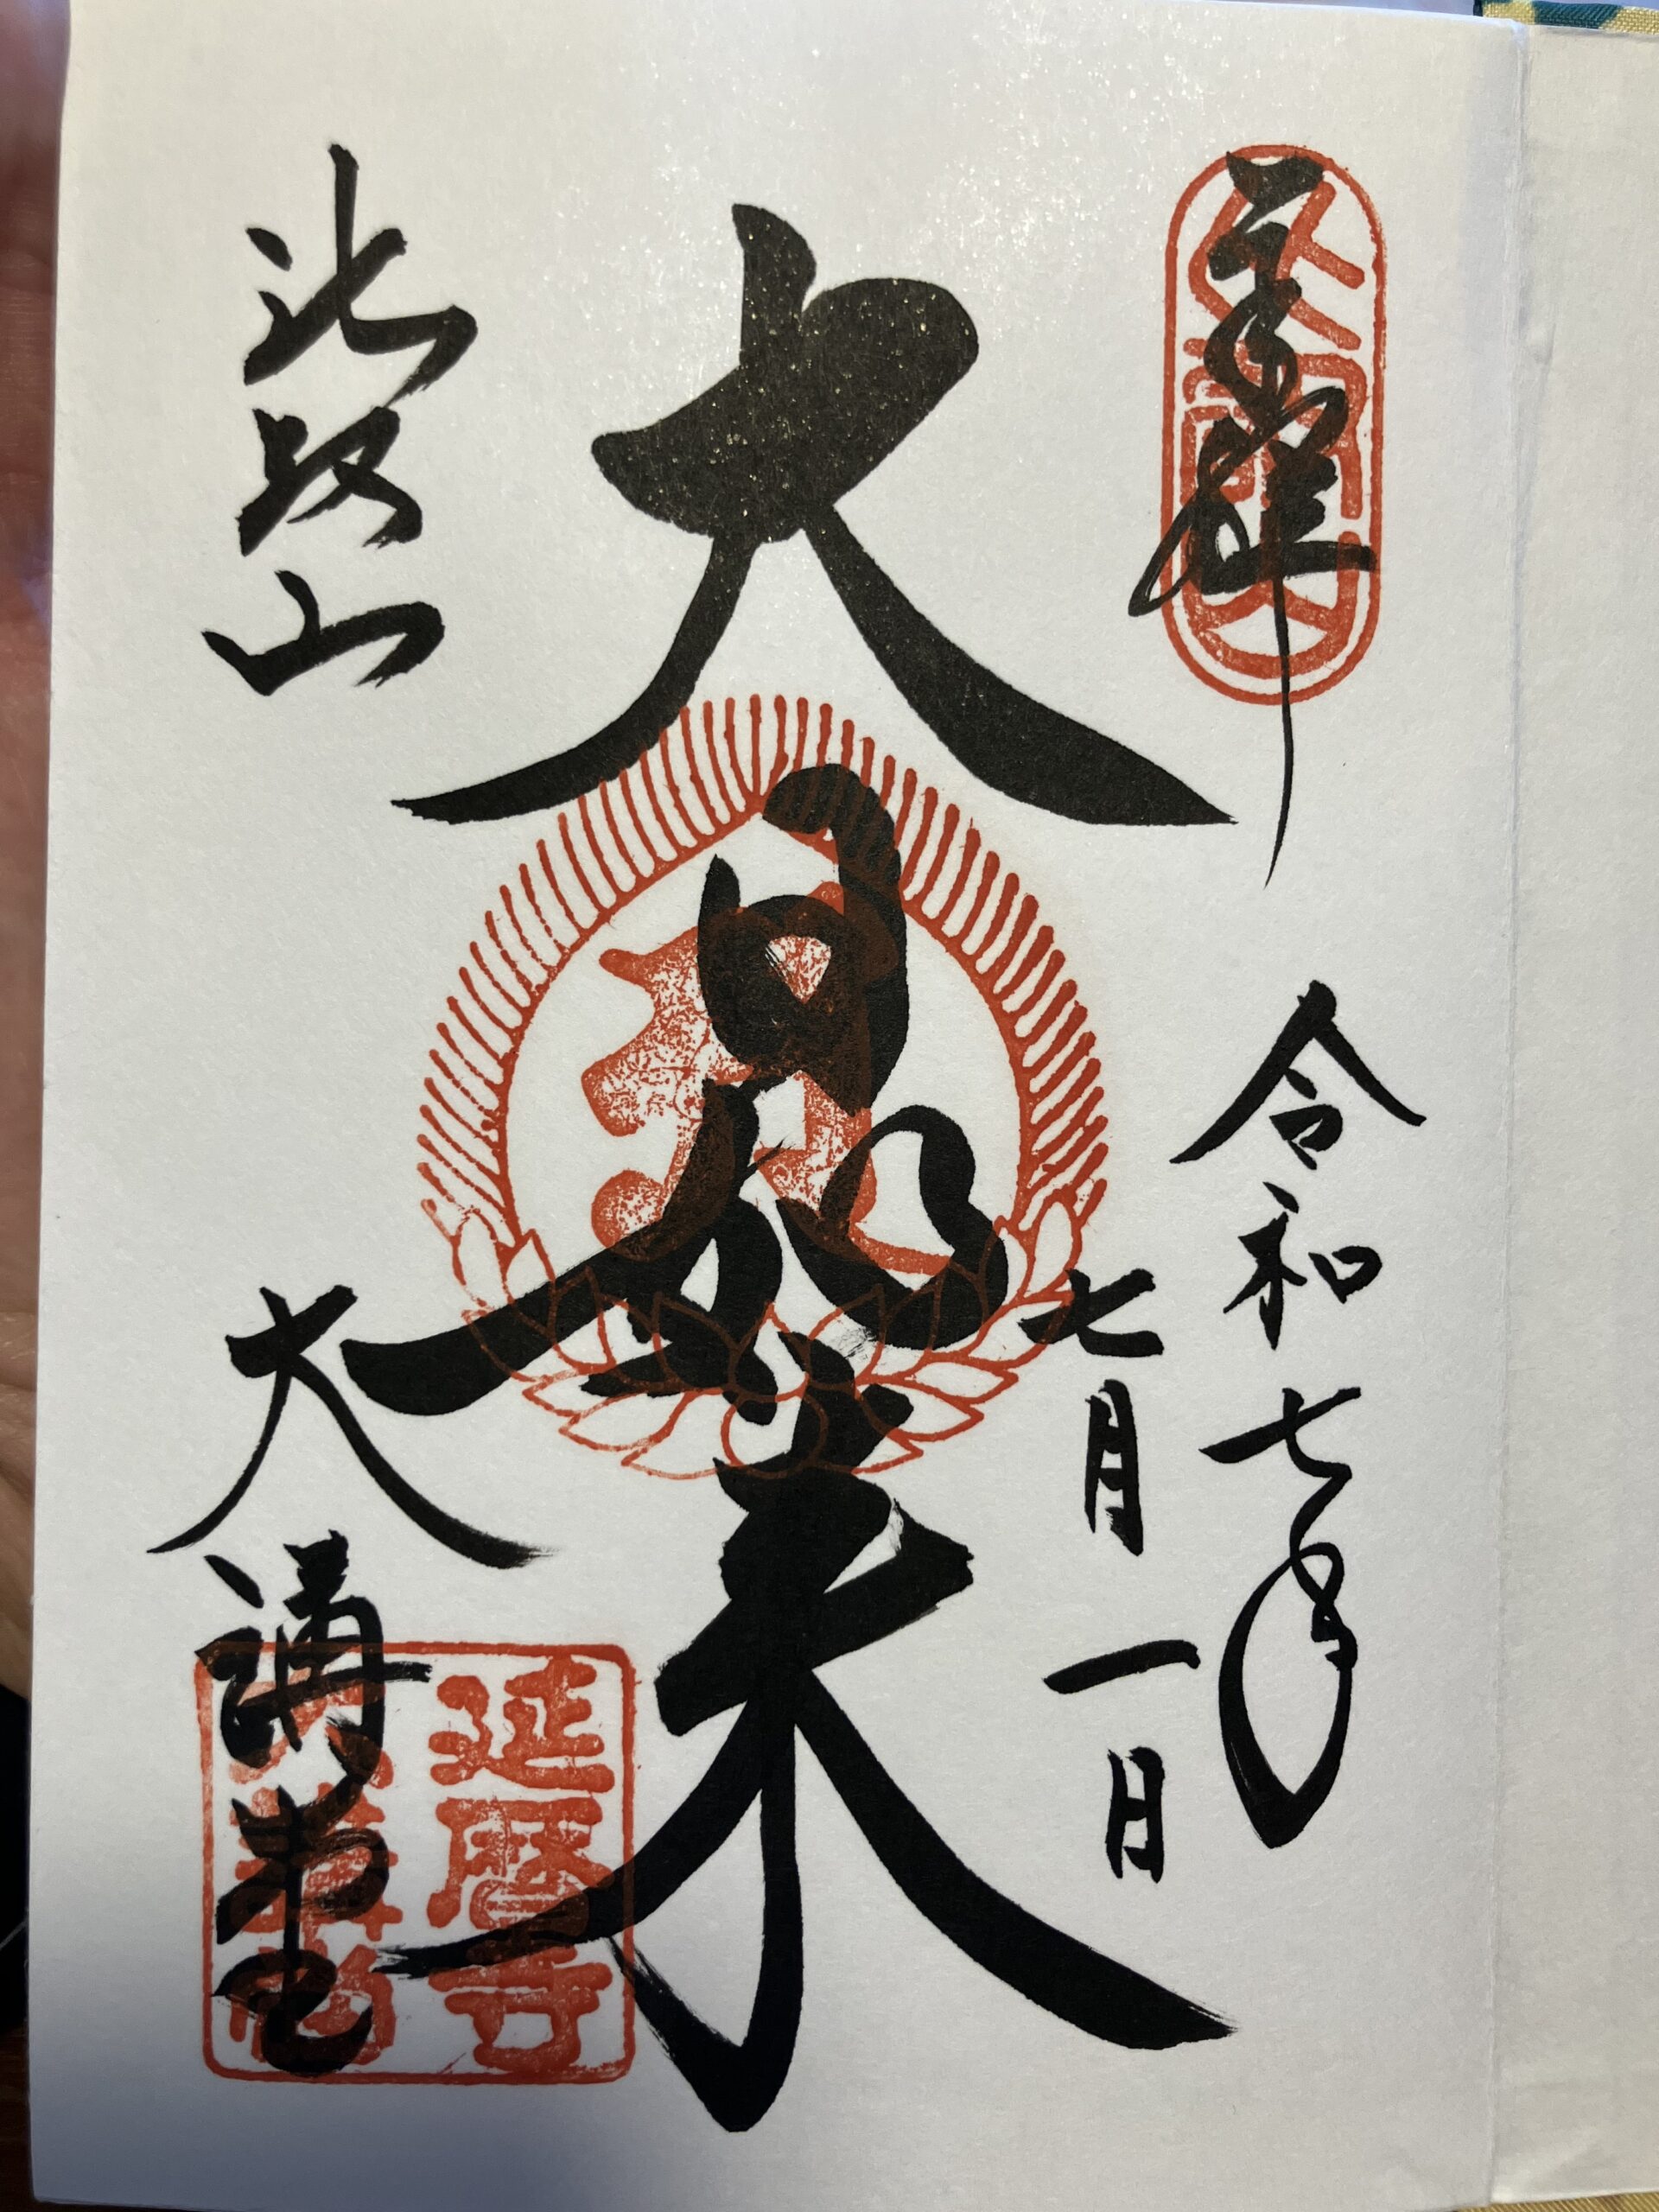 奉拝
令和七年
七月一日
大日如来
比叡山
大講堂
延暦寺
大講堂